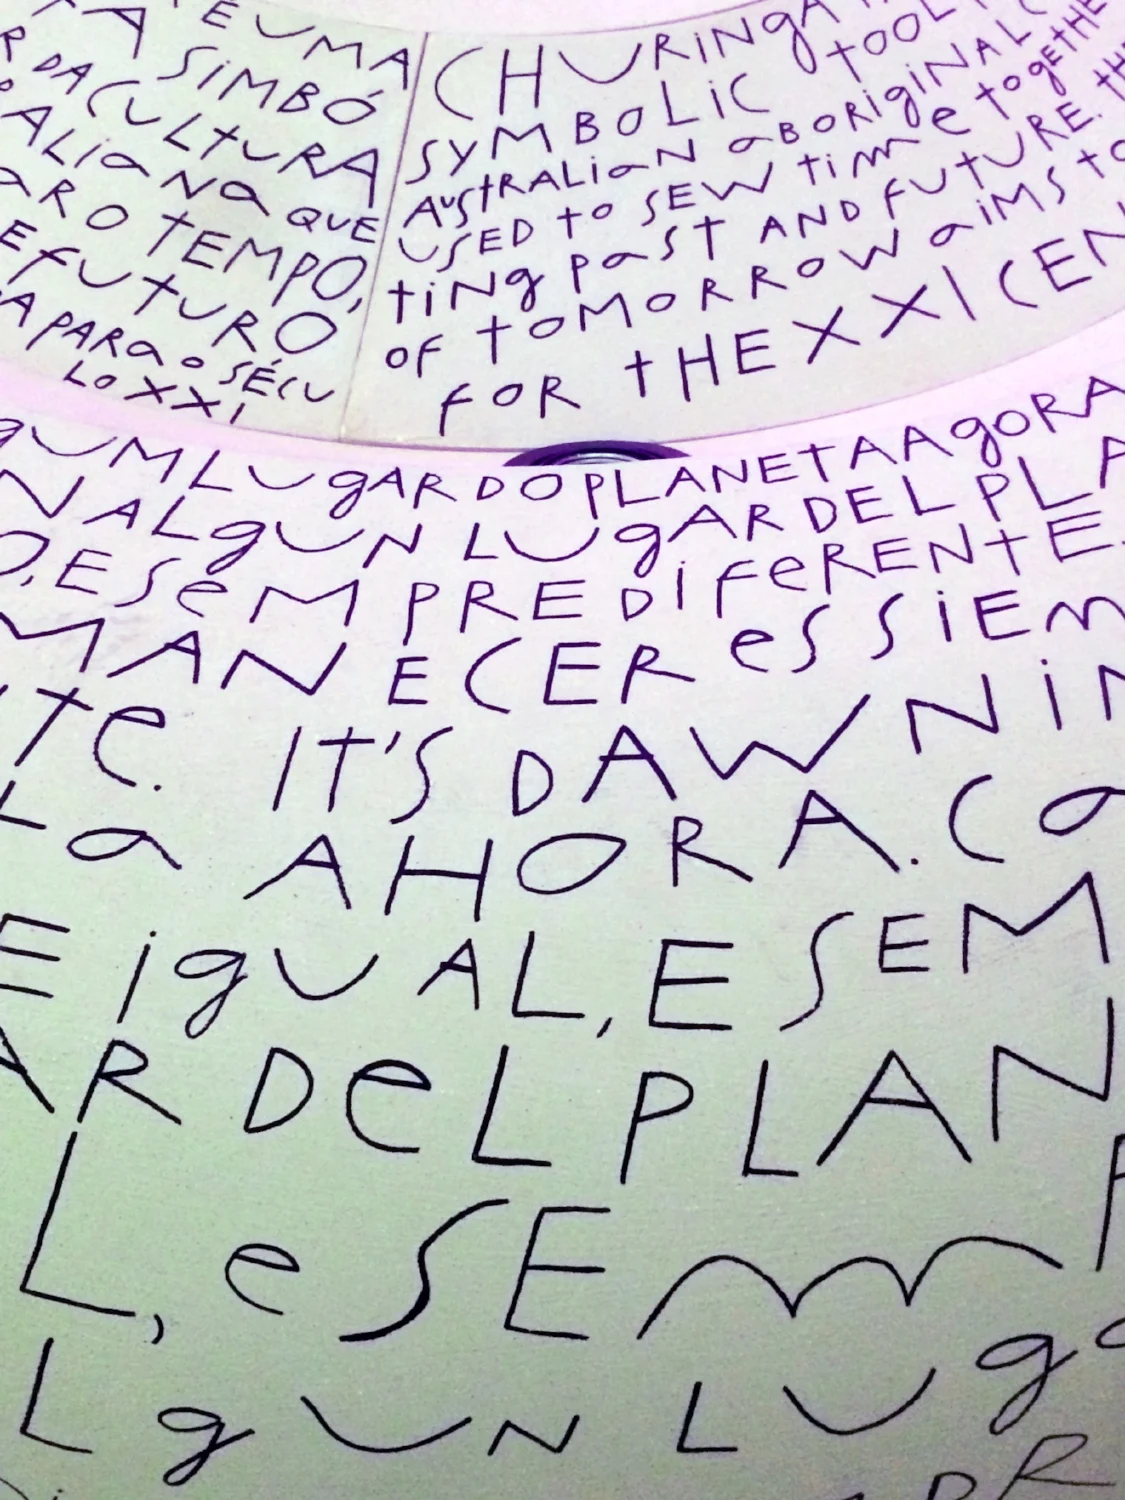 É UMA
SIMBÓ
DA CULTURA
ALIANA QUE
TEMPO,
E FUTURO
PARA O SÉCU
LO XXI
CHURINGA
SYMBOLIC TOOL
AUSTRALIAN ABORIGINAL
USED TO SEW TIME TOGETHE
TING PAST AND FUTURE. TH
OF TOMORROW AIMS TO
FOR THE XXI CEN
GUM LUGAR DO PLANETA AGORA
N ALGUN LUGAR DEL PLA
O, E SEMPRE DIFERENTE.
MANECER ES SIEM
TE. IT'S DAWN IN
LA AHORA. CA
E IGUAL, E SEM
AR DEL PLAN
L, e SEM
LGUN LUGA